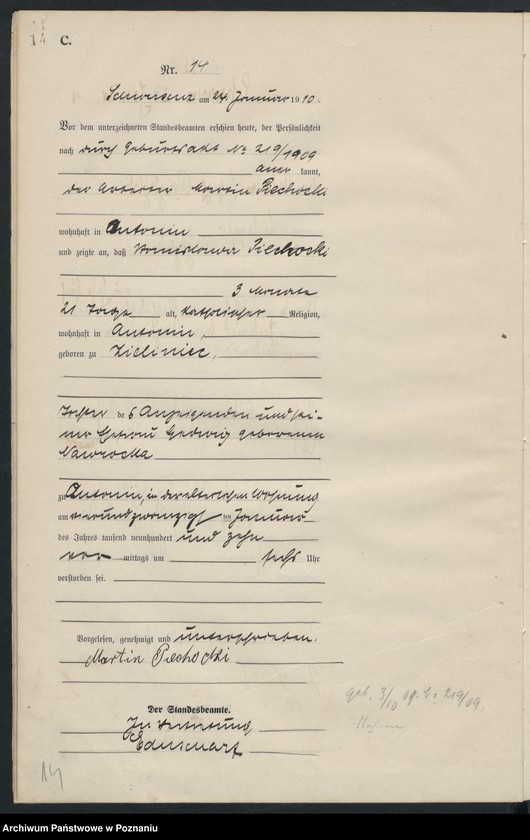 14 C.
Nr. 14
Schwersenz am 24. Januar 1910.
Vor dem unterzeichneten Standesbeamten erschien heute, der Persönlichkeit
nach durch Geburtsakt No 219/1909
aner kannt,
der Arbeiter Martin Piechocki
wohnhaft in Antonin
und zeigte an, daß Stanislawa Piechocki
3 Monate
21 Tage alt, katholischer Religion,
wohnhaft in Antonin,
geboren zu Zieliniec,
Tochter des Anzeigenden und sei-
ner Ehefrau Hedwig geborenen
Nawrocka
zu Antonin, in der elterlichen Wohnung
am vierundzwanzigsten Januar
des Jahres tausend neunhundert und zehn
vor mittags um sechs Uhr
verstorben sei.
Vorgelesen, genehmigt und unterschrieben.
Martin Piechocki
Der Standesbeamte.
In Vertretung
geb. 3/10 09. No 219/09.
14
Archiwum Państwowe w Poznaniu